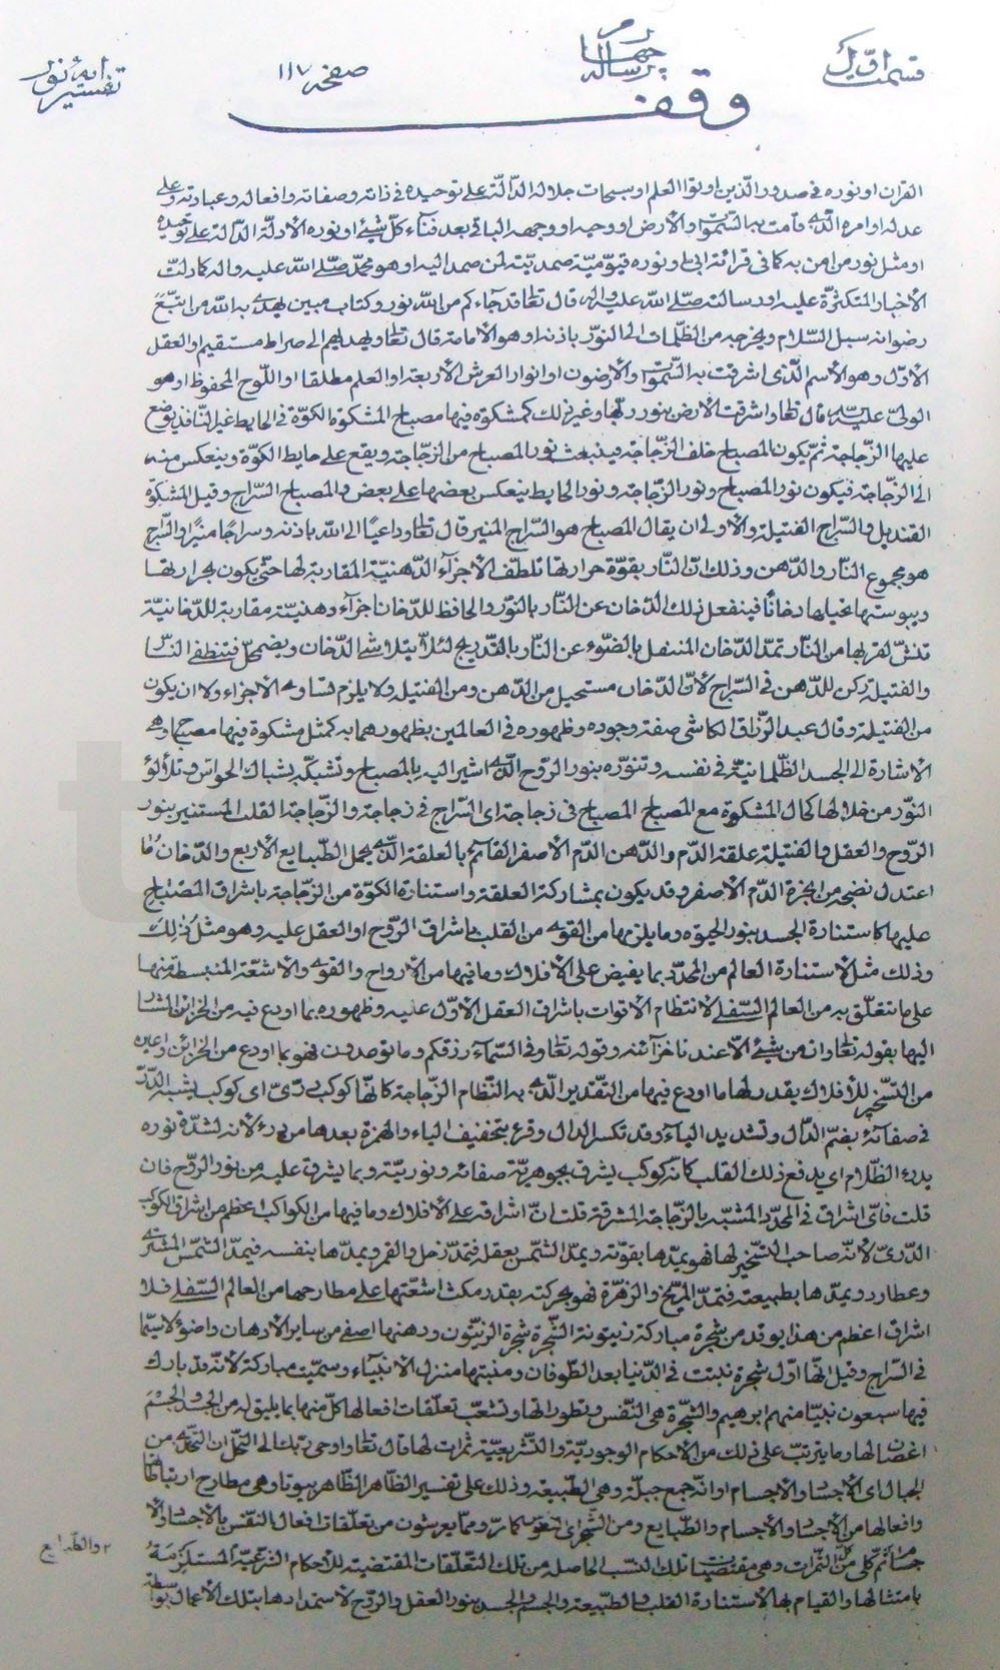 قسمت اول
رساله چهارم
صفحه ١١٧
تفسیر آیه نور
وقف
القرآن او نوره فى صدور الّذين اوتوا العلم او سبحات جلاله الدّالّة على توحيده فى ذاته وصفاته وافعاله وعبادته وعلى
عدله او امره الّذى قامت به السّموات والأرض او وجهه الباقى بعد فناء كلّ شيئ او نوره الأدلّة الدّالة على توحيده
او مثل نور من امن به كما فى قرائة ابى او نوره قيّوميّة صمديّته لمن صمد اليه او هو محمّد صلّى الله عليه واله كما دلّت
الأخبار المتكثرة عليه او رسالته صلّى الله عليه واله قال تعالى قد جاءكم من الله نور وكتاب مبين يهدى به الله من اتّبع
رضوانه سبل السّلام ويخرجهم من الظّلمات الى النّور باذنه او هو الأمامة قال تعالى ويهديهم الى صراط مستقيم او العقل
الأوّل وهو الأسم الّذى اشرقت به السّموات والأرضون او انوار العرش الأربعة او العلم مطلقا او اللّوح المحفوظ او هو
الولىّ عليه السّلام قال تعالى واشرقت الأرض بنور ربّها وغير ذلك كمشكوة فيها مصباح المشكوة الكوّة فى الحايط غير النّافذ يوضع
عليها الزّجاجة ثمّ يكون المصباح خلف الزّجاجة فينبعث نور المصباح من الزّجاجة ويقع على حايط الكوّة وينعكس منه
الى الزّجاجة فيكون نور المصباح ونور الزّجاجة ونور الحايط ينعكس بعضها على بعض والمصباح السّراج وقيل المشكوة
القنديل والسّراج الفتيلة والأولى ان يقال المصباح هو السّراج المنير قال تعالى وداعيًا الى الله باذنه وسراجًا منيرًا والسّراج
هو مجموع النّار والدّهن وذلك انّ النّار بقوّة حرارتها تلطّف الأجزاء الدّهنيّة المقاربة لها حتّى يكون بحرارتها
ويبوستها تحيلها دخانًا فينفعل ذلك الدّخان عن النّار بالنّور والحافظ للدّخان اجزاء دهنيّة مقاربة للدّخانيّة
تنشّ لقربها من النّار تمدّ الدّخان المنفعل بالضّوء عن النّار بالتّدريج لئلاّ يتلاشى الدّخان ويضمحلّ فتنطفى النّار
والفتيلة ركن للدّهن فى السّراج لأنّ الدّخان مستحيل من الدّهن ومن الفتيلة ولا يلزم تساوى الأجزاء ولا ان يكون
من الفتيلة وقال عبد الرّزاق الكاشى صفة وجوده وظهوره فى العالمين بظهورهما به كمثل مشكوة فيها مصباح وهى
الأشارة الى الجسد الظّلمانيّة فى نفسه وتنوّره بنور الرّوح الّذى اشير اليه بالمصباح وتشبّكه بشباك الحواس وتلألؤ
النّور من خلالها كحال المشكوة مع المصباح المصباح فى زجاجة اى السّراج فى زجاجة والزّجاجة القلب المستنير بنور
الرّوح والعقل والفتيلة علقة الدّم والدّهن الدّم الأصفر القائم بالعلقة الّذى يحمل الطّبايع الأربع والدّخان ما
اعتدل نضجه من ابخرة الدّم الأصفر وقد يكون بمشاركة العلقة واستنارة الكوّة من الزّجاجة باشراق المصباح
عليها كاستنارة الجسد بنور الحيوة وما يلزمها من القوى من القلب باشراق الرّوح او العقل عليه وهو مثل ذلك
وذلك مثل لأستنارة العالم من المحدّد بما يفيض على الأفلاك وما فيها من الأرواح والقوى والأشعّة المنبسطة منها
على ما تتعلّق به من العالم السّفلى لأنتظام الأقوات باشراق العقل الأوّل عليه وظهوره بما اودع فيه من الخزائن المشار
اليها بقوله تعالى وان من شيئ الاّ عندنا خزآئنه وقوله تعالى وفى السّمآء رزقكم وما توعدون فهو بما اودع من الخزائن
من التّسخير للأفلاك يقدر لها ما اودع فيها من التّقدير الّذى به النّظام الزّجاجة كانّها كوكب درّىّ اى كوكب يشبه الدّرّ
فى صفائه بضمّ الدّال وتشديد الياء وقد تكسر الدال وقرئ بتخفيف الياء والهمزة بعدها من درء لأنه لشدّة نوره
يدرء الظّلام اى يدفع ذلك القلب كانّه كوكب يشرق بجوهريّة صفائه ونوريّته وبما يشرق عليه من نور الرّوح فان
قلت فاىّ اشراق فى المحدّد المشبّه بالزّجاجة المشرقة قلت انّ اشراقه على الأفلاك وما فيها من الكواكب اعظم من اشراق الكوكب
الدّرىّ لأنّه صاحب التّسخير لها فهو يمدّها بقوّته ويمدّ الشّمس بعقله فتمدّ زحل والقمر ويمدّها بنفسه فيمدّ الشّمس المشترى
وعطارد ويمدّها بطبيعته فتمدّ المرّيخ والزّهرة فهو بحركته بقدر مكث اشعّتها على مطارحها من العالم السّفلى فلا
اشراق اعظم من هذا يوقد من شجرة مباركة زيتونة الشّجرة شجرة الزّيتون ودهنها اصفى من ساير الأدهان واضوء لاسيّما
فى السّراج وقيل انّها اوّل شجرة نبتت فى الدّنيا بعد الطّوفان ومنبتها منزل الأنبياء وسمّيت مباركة لأنه قد بارك
فيها سبعون نبيًّا منهم ابرهيم والشّجرة هى النّفس وتطوراتها وتشعّب تعلّقات افعالها كلّ منها بما يليق له من الجسد والجسم
اغصانها وما يترتّب على ذلك من الأحكام الوجوديّة والتّشريعيّة ثمرات لها قال تعالى واوحى ربّك الى النّحل ان اتّخذى من
الجبال اى الأجساد والأجسام او انّه جمع جبلّة وهى الطّبيعة وذلك على تفسير الظّاهر الظّاهر بيوتا وهى مطارح ارتباطها
وافعالها من الأجساد والأجسام والطّبايع ومن الشّجر اى النّفوس كما مرّ وممّا يعرشون من تعلّقات افعال النّفس بالأجساد والأ
جسام ثمّ كلى من كلّ الثّمرات وهى مقتضيات تلك النّسب الحاصلة من تلك التّعلّقات المقتضية للأحكام الشّرعيّة المستلزمة
بامتثالها والقيام بها لأستنارة القلب والطّبيعة والجسم والجسد بنور العقل والرّوح لأستمدادها بتلك الأعمال بواسطة
٢ والطبايع